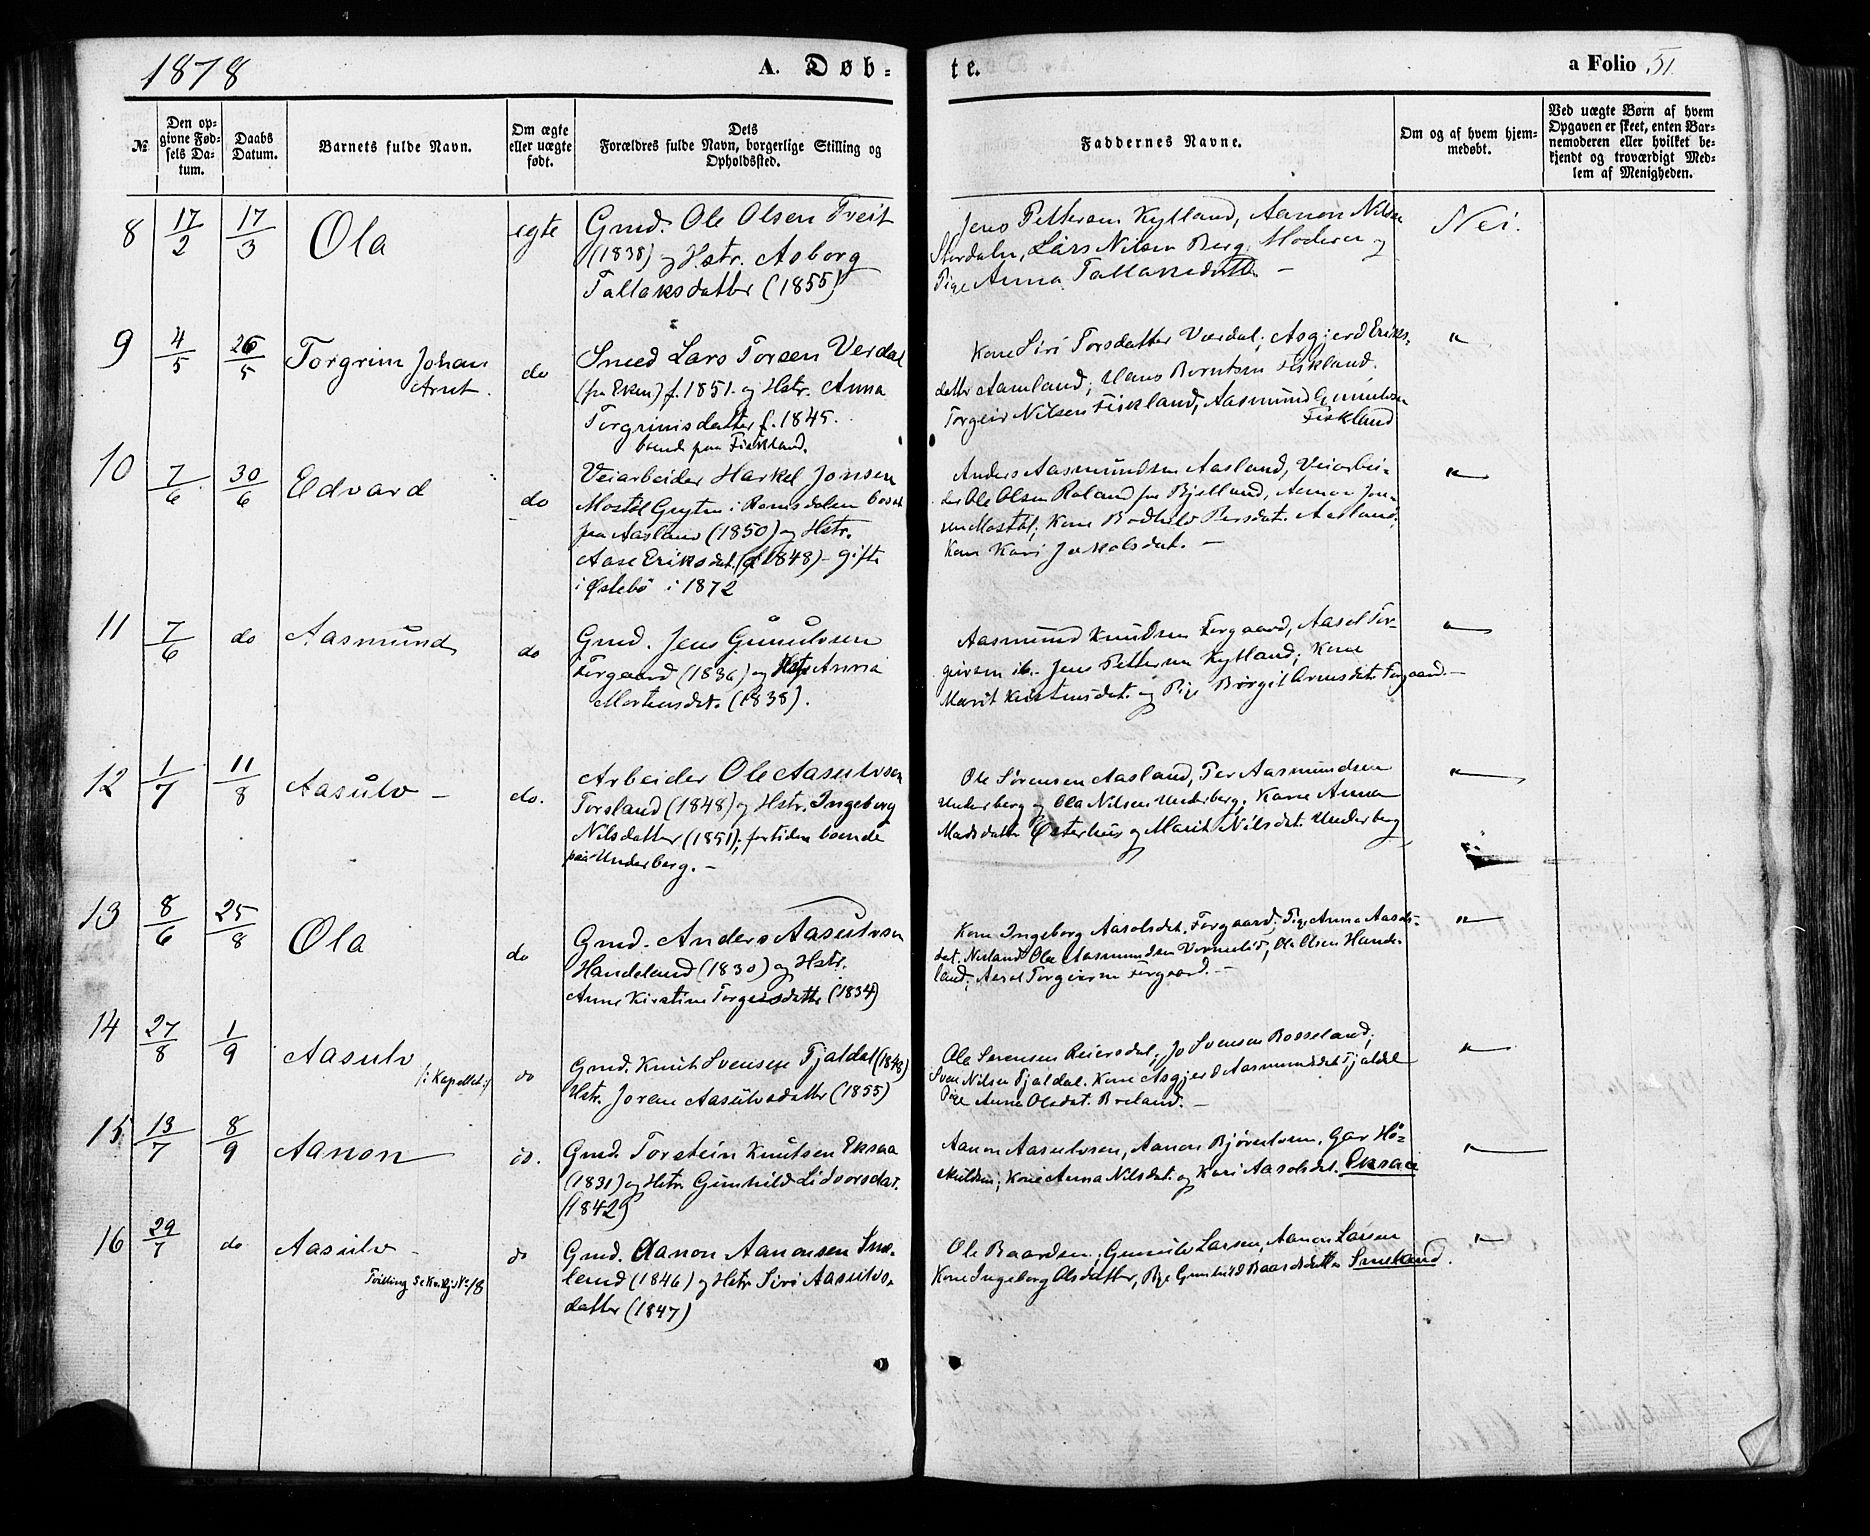 1878
A. Døb-
te.
a Folio 51.
№
Den op-
givne Fød-
sels Da-
tum.
Daabs
Datum.
Barnets fulde Navn.
Om ægte
eller uægte
født.
Dets
Forældres fulde Navn, borgerlige Stilling og
Opholdssted.
Faddernes Navne.
Om og af hvem hjem-
medøbt.
Ved uægte Børn af hvem
Opgaven er skeet, enten Bar-
nemoderen eller hvilket be-
kjendt og troværdigt Med-
lem af Menigheden.
8 17/2 17/3 Ola egte
Gmd. Ole Olsen Tveit
(1838) og Hstr. Asborg
Tallaksdatter (1855)
Jens Pettersen Kylland, Aanon Nilsen
Stordalen, Lars Nilsen Berg, Moderen og
Pige Anna Tallaksdatter —
Nei.
9 4/5 26/5 Torgrim Johan
Arnt.
do
Smed Lars Torsen Verdal
(fra Eken) f. 1851. og Hstr. Anna
Torgrimsdatter f. 1845.
boende paa Fiskland.
Kone Siri Torsdatter Værdal; Asgjerd Eriks-
datter Aamland; Hans Berntsen Fiskland.
Torgeir Nilsen Fiskland, Aasmund Gunnulvsen
Fiskland
"
10 7/6 30/6 Edvard do
Veiarbeider Harkel Jonsen
Mostøl Grytten i Romsdalen bosat
paa Aasland (1850) og Hstr.
Aase Eriksdat. (f 1848) - gifte
i Østebø i 1872
Anders Aasmundsen Aasland, Veiarbei-
der Ole Olsen Røland fra Bjelland, Aanon Jon-
sen Mostøl; Kone Bodhild Persdat. Aasland.
Kone Kari Jakobsdat. —
"
11 7/6 do Aasmund do
Gmd. Jens Gunulvsen
Fergaard (1836) og Hstr Anna
Mortensdat. (1838).
Aasmund Knudsen Fergaard, Aasel Tor-
geirsen ib. Jens Pettersen Kylland; Kone
Marit Kristensdat. og Pige Børgit Arnesdat. Fergaard. —
"
12 1/7 11/8 Aasulv - do.
Arbeider Ole Aasulvsen
Torsland (1848) og Hstr. Ingeborg
Nilsdatter (1851); fortiden boende
paa Underberg. -
Ole Sørensen Aasland, Per Aasmundsen
Underberg og Ola Nilsen Underberg, Kone Anna
Madsdatter Østerhus og Marit Nilsdat. Underberg
"
13 8/6 25/8 Ola do
Gmd. Anders Aasulvsen
Handeland (1830) og Hstr.
Anne Kirstine Torgeirsdatter (1834)
Kone Ingeborg Aasolsdat. Fergaard; Pige Anna Aasols-
dat. Neiland Ole Aasmundsen Vormelid; Ole Olsen Hande-
land; Aasel Torgeirsen Fergaard. —
"
14 27/8 1/9 Aasulv
/: i Kapellet :/
do
Gmd. Knut Svensen Fjaldal (1848)
Hstr. Joran Aasulvsdatter (1855)
Ole Sørensen Reiersdal; Jo Svensen Bosseland;
Sven Nilsen Fjaldal. Kone Asgjerd Aasmundsdat. Fjaldal
Pige Anne Olsdat. Breland. —
"
15 13/7 8/9 Aanon do.
Gmd. Torstein Knutsen Eksaa
(1831) og Hstr Gunhild Lidvorsdat.
(1842)
Aanon Aasulvsen, Aanon Bjørnulvsen, Gar Hø-
skuldsen; Kone Anna Nilsdat. og Kari Aasolsdat. Eksaae
"
16 29/7 do Aasulv -
Tvilling se Kvikj. No 18
do
Gmd. Aanon Aanonsen Sme-
land (1846) og Hstr Siri Aasulvs-
datter (1847)
Ole Baardsen, Gunulv Larsen, Aanon Larsen
Kone Ingeborg Olsdatter, Pige Gunhild Baardsdatter Smeland.
"